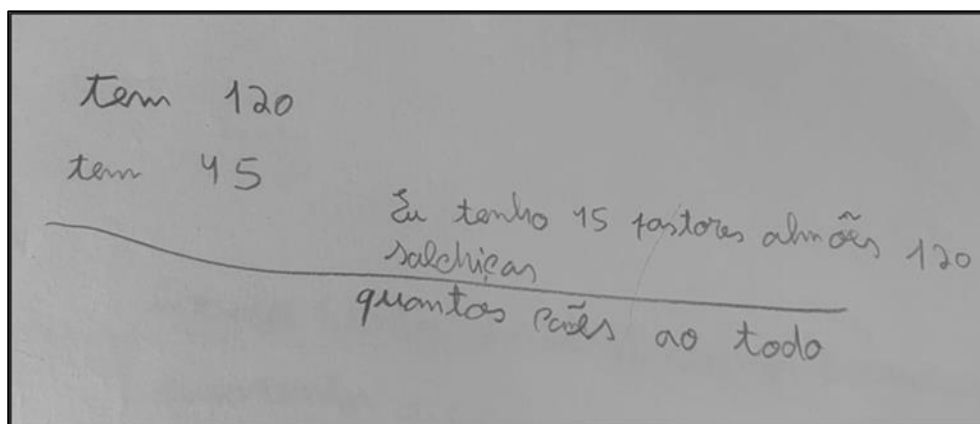 tem 120
tem 45
Eu tenho 15 pastores almões 120
salchiças
quantos cães ao todo